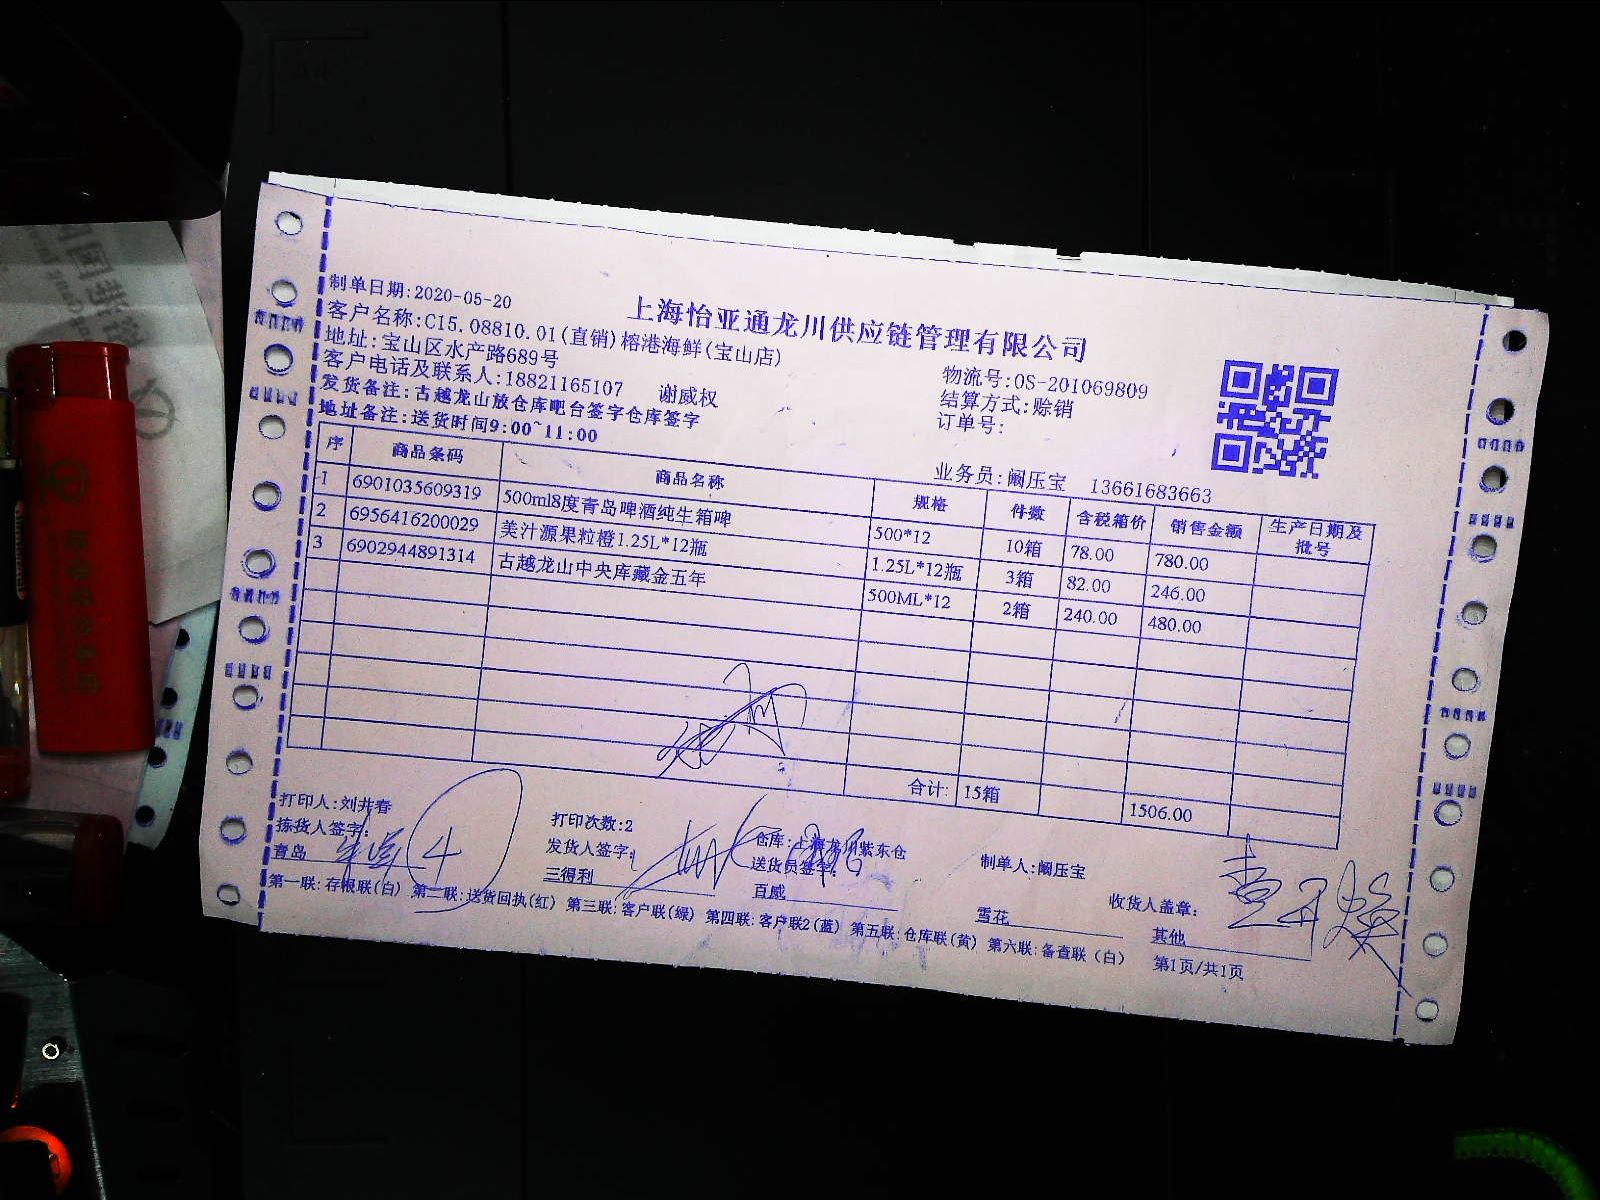 上海怡亚通龙川供应链管理有限公司
制单日期:2020-05-20
客户名称:C15.08810.01(直销)榕港海鲜(宝山店)
地址:宝山区水产路689号
客户电话及联系人:18821165107 谢威权
发货备注:古越龙山放仓库吧台签字仓库签字
地址备注:送货时间9:00~11:00
物流号:OS-201069809
结算方式:赊销
订单号:
业务员:阚压宝 13661683663
序 商品条码 商品名称 规格 件数 含税箱价 销售金额 生产日期及批号
1 6901035609319 500ml8度青岛啤酒纯生箱啤 500*12 10箱 78.00 780.00
2 6956416200029 美汁源果粒橙1.25L*12瓶 1.25L*12瓶 3箱 82.00 246.00
3 6902944891314 古越龙山中央库藏金五年 500ML*12 2箱 240.00 480.00
合计: 15箱 1506.00
打印人:刘井春 打印次数:2 仓库:上海龙川紫东仓 制单人:阚压宝
拣货人签字: 4 发货人签字: 送货员签字: 收货人盖章:
青岛 三得利 百威 雪花 其他
第一联:存根联(白) 第二联:送货回执(红) 第三联:客户联(绿) 第四联:客户联2(蓝) 第五联:仓库联(黄) 第六联:备查联(白) 第1页/共1页